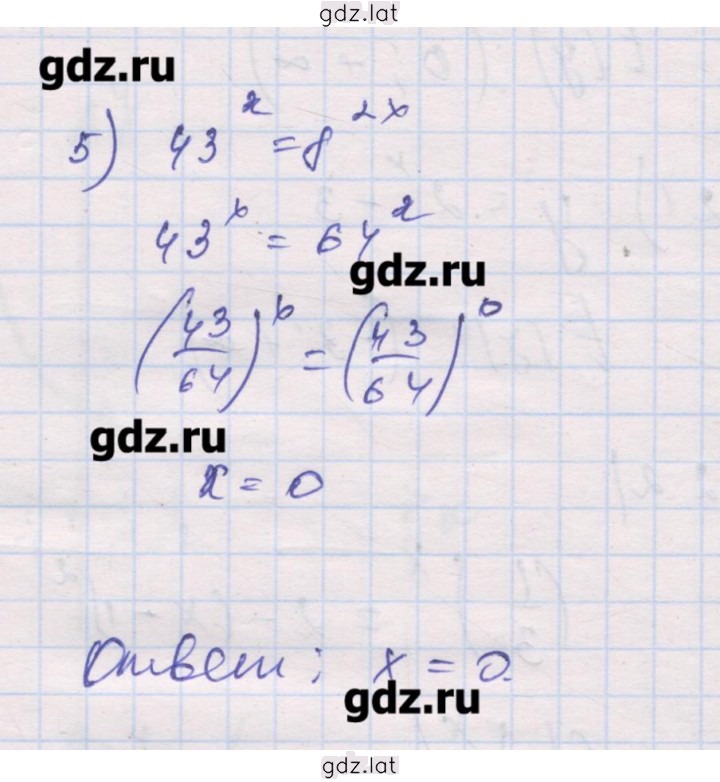 gdz.lat
gdz.ru
5) 43^x = 8^2x
43^x = 64^x
gdz.ru
(43/64)^x = (43/64)^0
gdz.ru
x = 0
Ответ: x = 0.
gdz.ru
gdz.lat